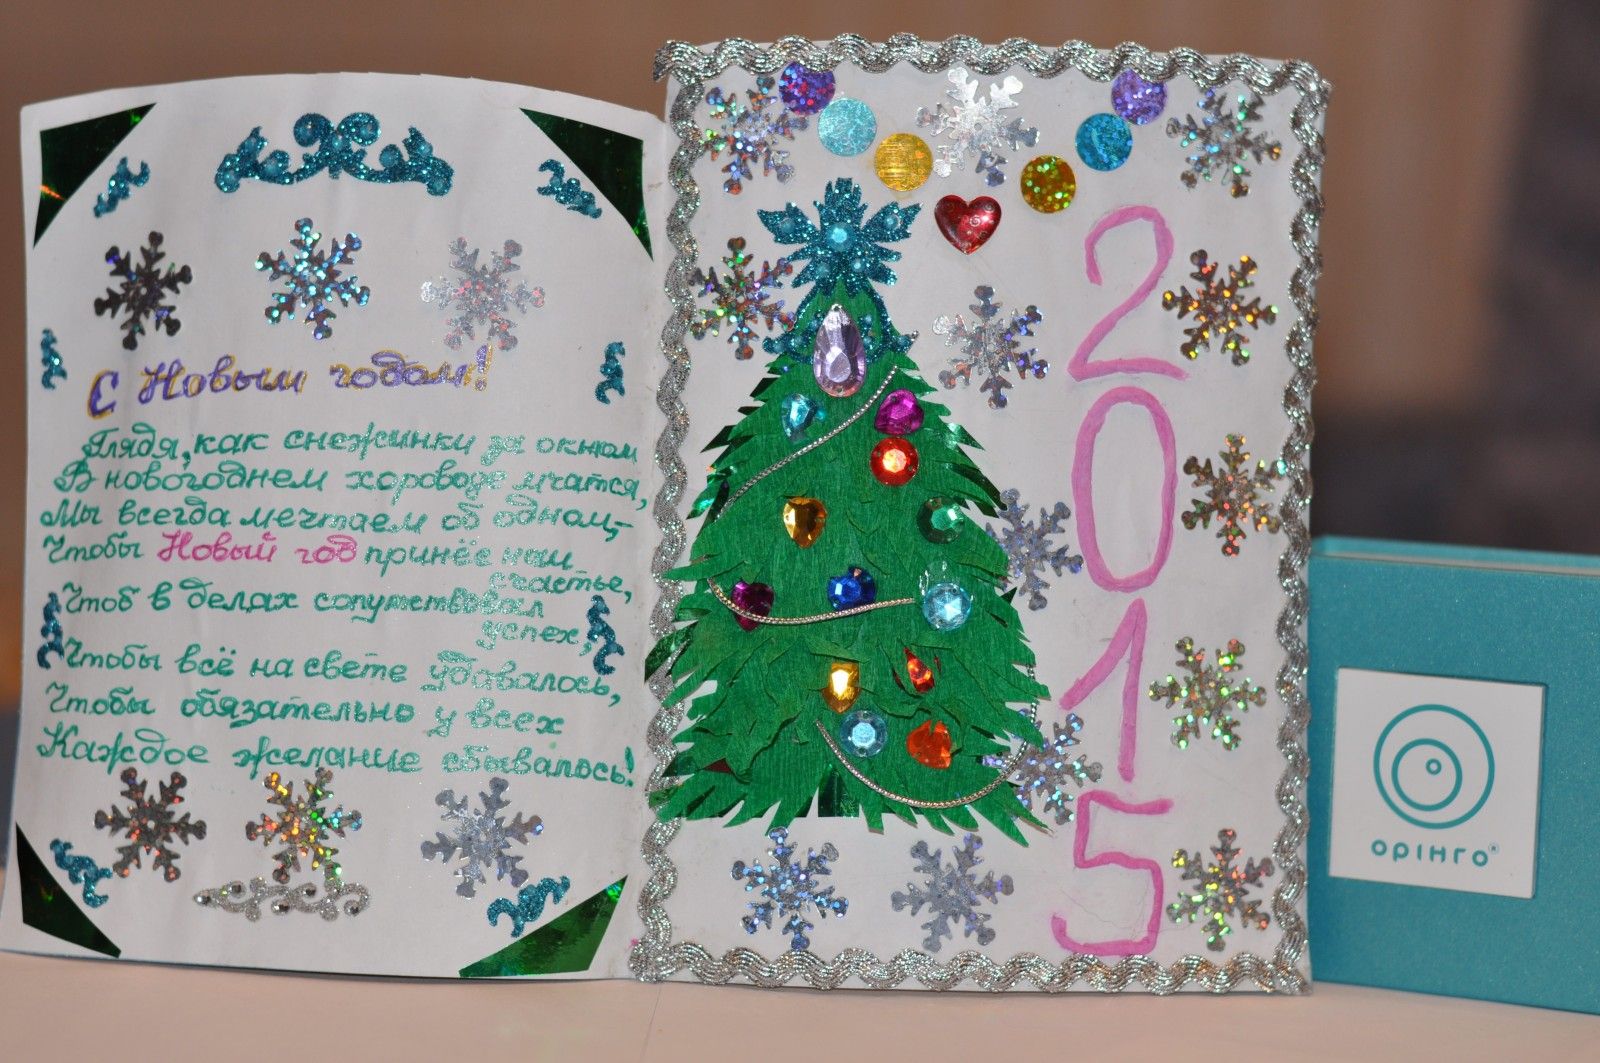 С Новым годом!
Глядя, как снежинки за окном
В новогоднем хороводе мчатся,
Мы всегда мечтаем об одном,-
Чтобы Новый год принёс нам
счастье,
Чтоб в делах сопутствовал
успех,
Чтобы всё на свете удавалось,
Чтобы обязательно у всех
Каждое желание сбывалось!
2015
орінго®